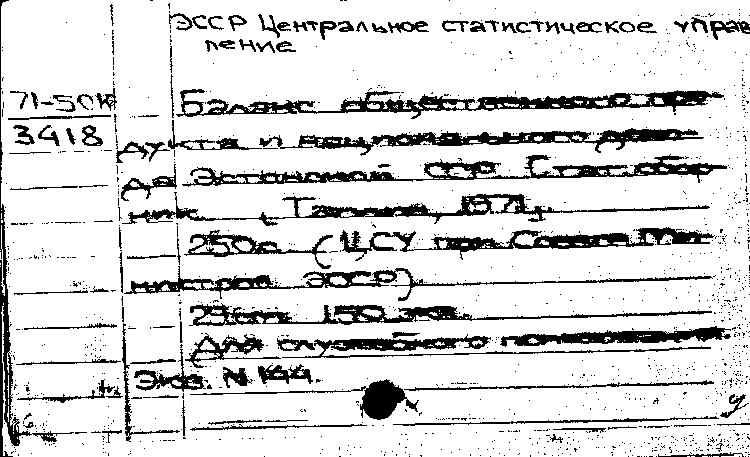 ЭССР Центральное статистическое управ
ление
71-50К Баланс общественного про-
3418 дукта и национального дохо-
да Эстонской ССР. Стат. сбор
ник. Таллин, 1971.
250с. (ЦСУ при Совете Ми
нистров ЭССР).
29см. 150 экз.
Для служебного пользования.
Экз. N 144.